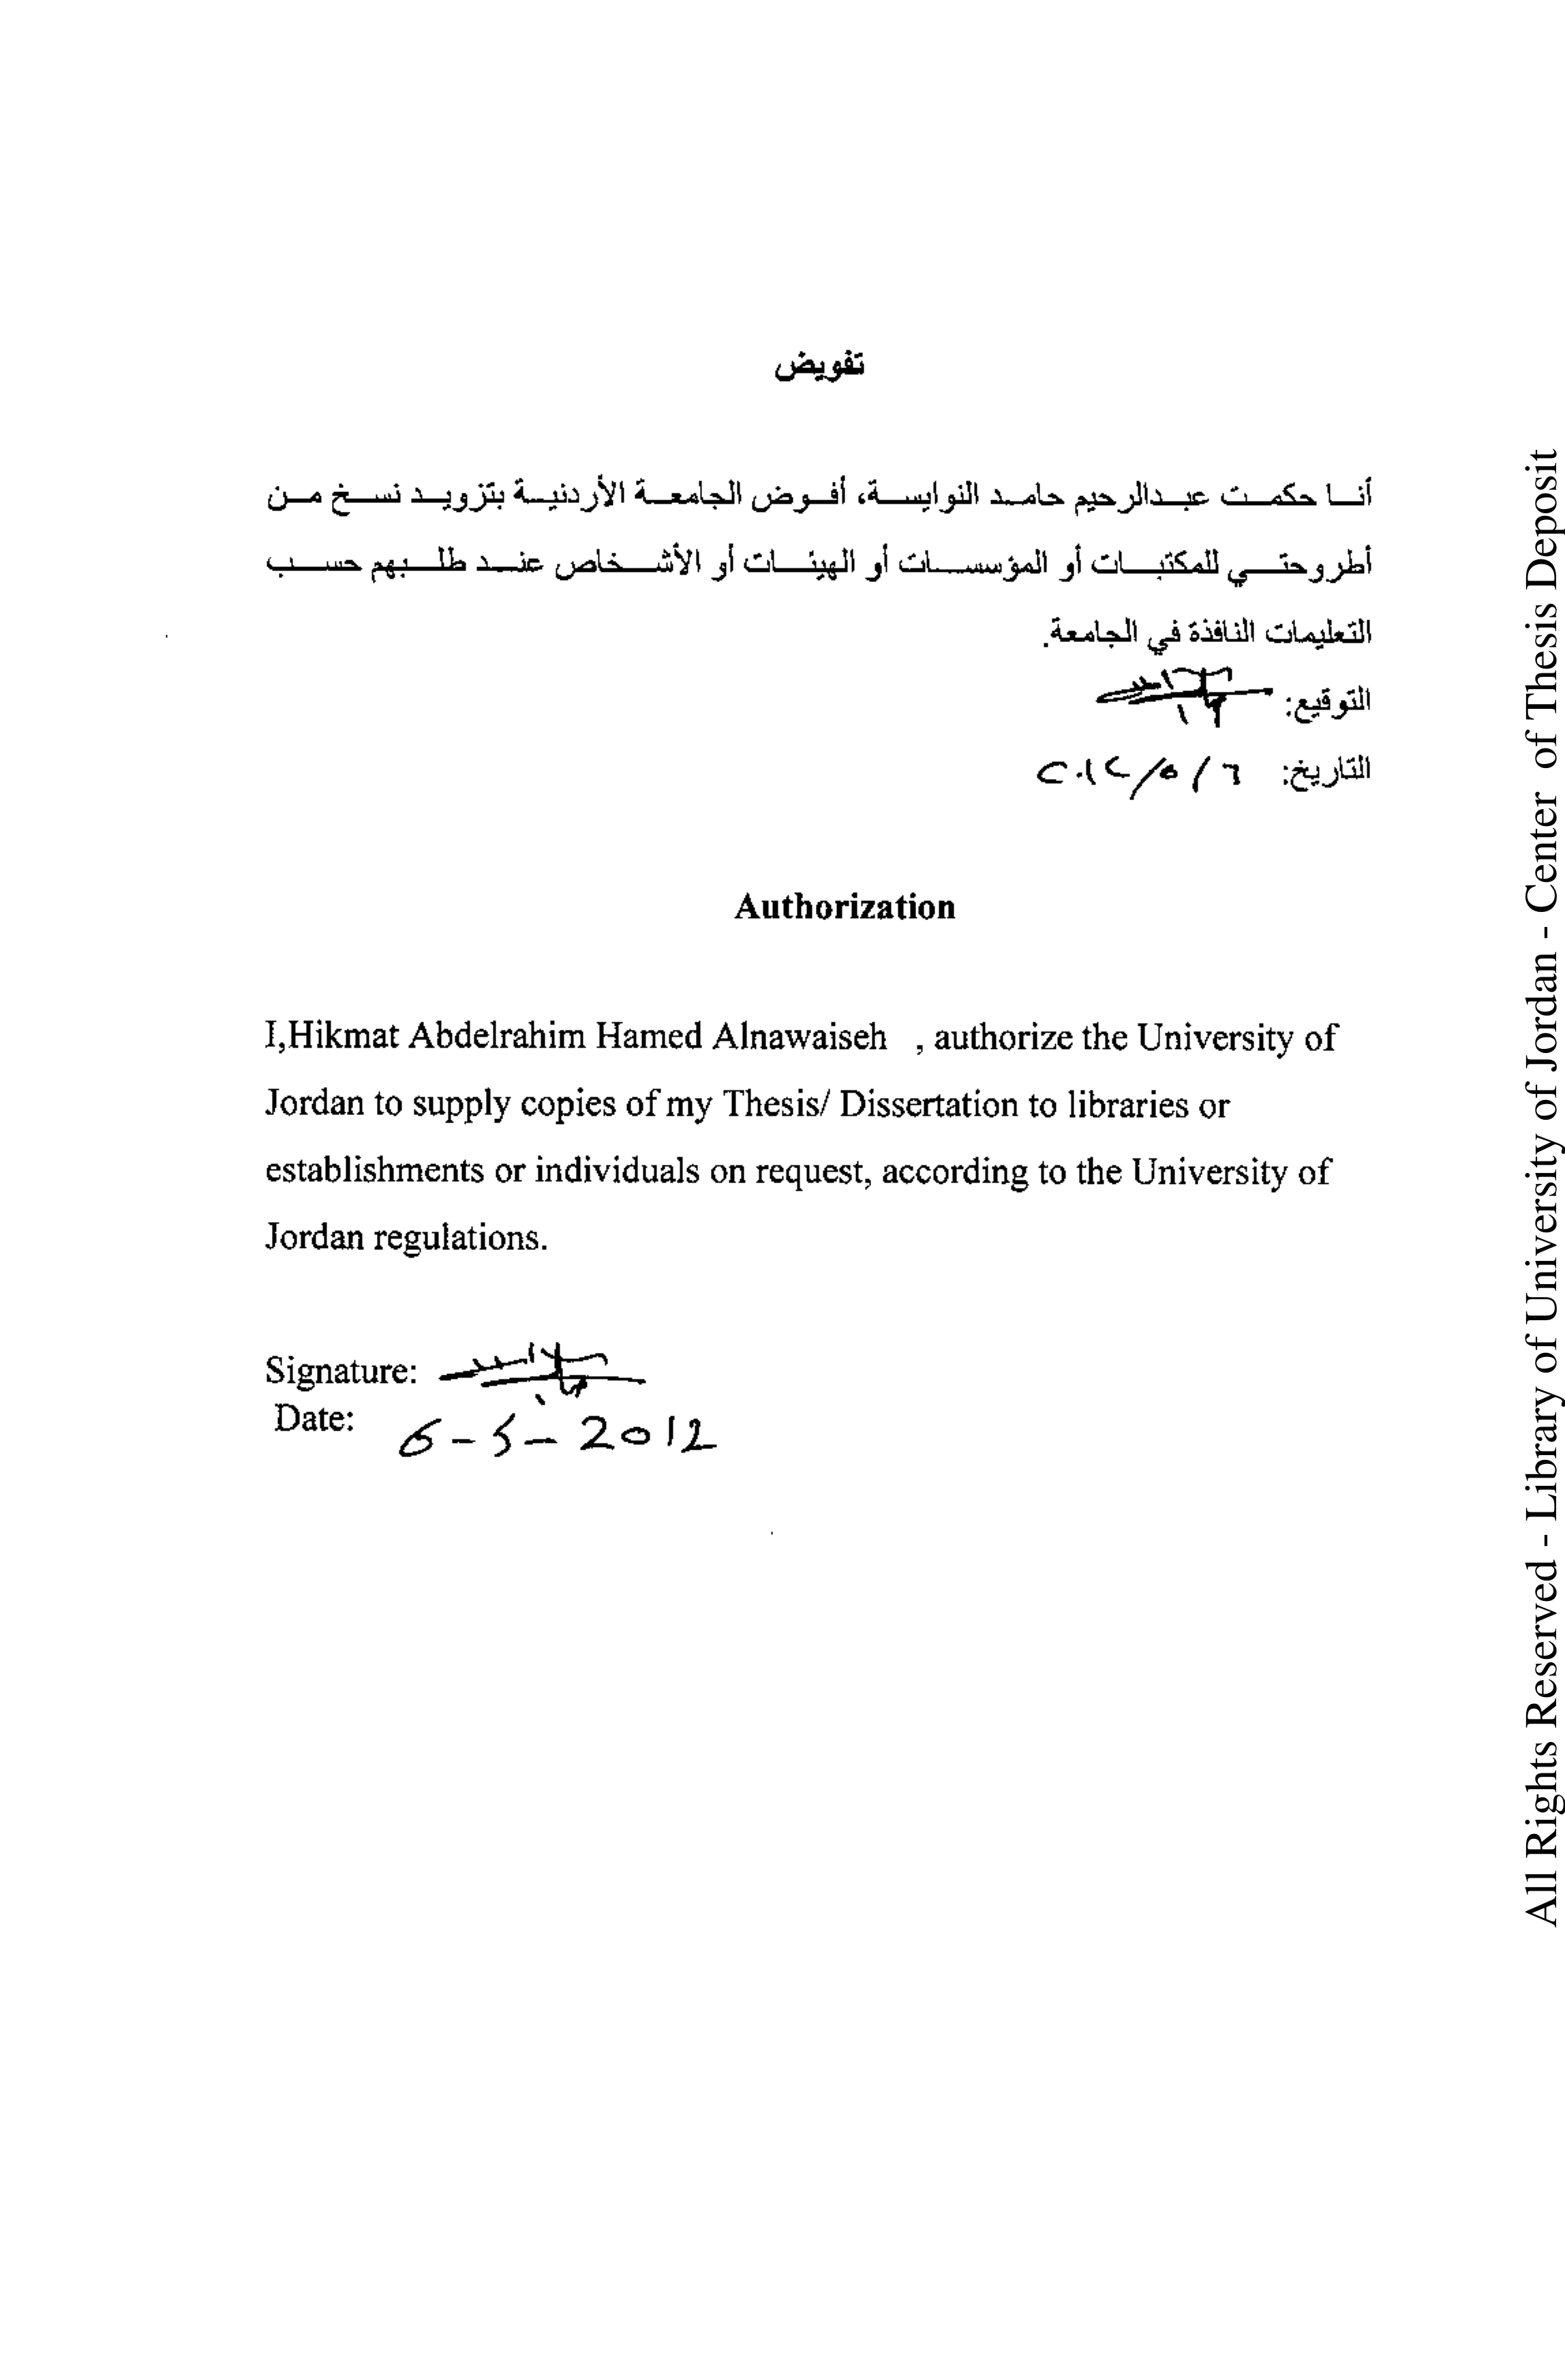 تفويض
أنا حكمت عبدالرحيم حامد النوايسة، أفوض الجامعة الأردنية بتزويد نسخ من
أطروحتي للمكتبات أو المؤسسات أو الهيئات أو الأشخاص عند طلبهم حسب
التعليمات النافذة في الجامعة.
التوقيع:
التاريخ: ٦/٥/٢٠١٢
Authorization
I,Hikmat Abdelrahim Hamed Alnawaiseh , authorize the University of
Jordan to supply copies of my Thesis/ Dissertation to libraries or
establishments or individuals on request, according to the University of
Jordan regulations.
Signature:
Date: 6-5-2012
All Rights Reserved - Library of University of Jordan - Center of Thesis Deposit